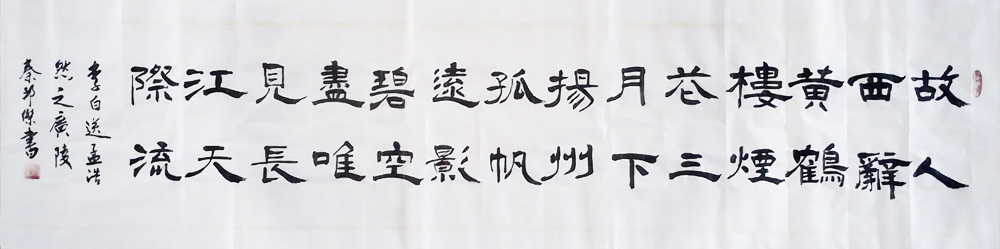 故人
西辭
黄鶴
樓煙
花三
月下
揚州
孤帆
遠影
碧空
盡唯
見長
江天
際流
李白送孟浩
然之廣陵
秦邦傑書